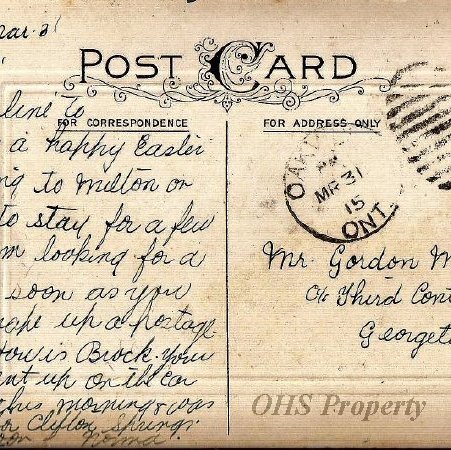 Mar. 31
POST CARD
FOR CORRESPONDENCE
FOR ADDRESS ONLY
line to
a happy Easter
to Milton on
to stay for a few
looking for a
soon as you
up a postage
How is Brock. You
up on the car
this morning & was
Clifton Springs.
Norma
OAK
PM
MR 31
15
ONT.
Mr. Gordon M
c/o Third Cont
Georget
OHS Property